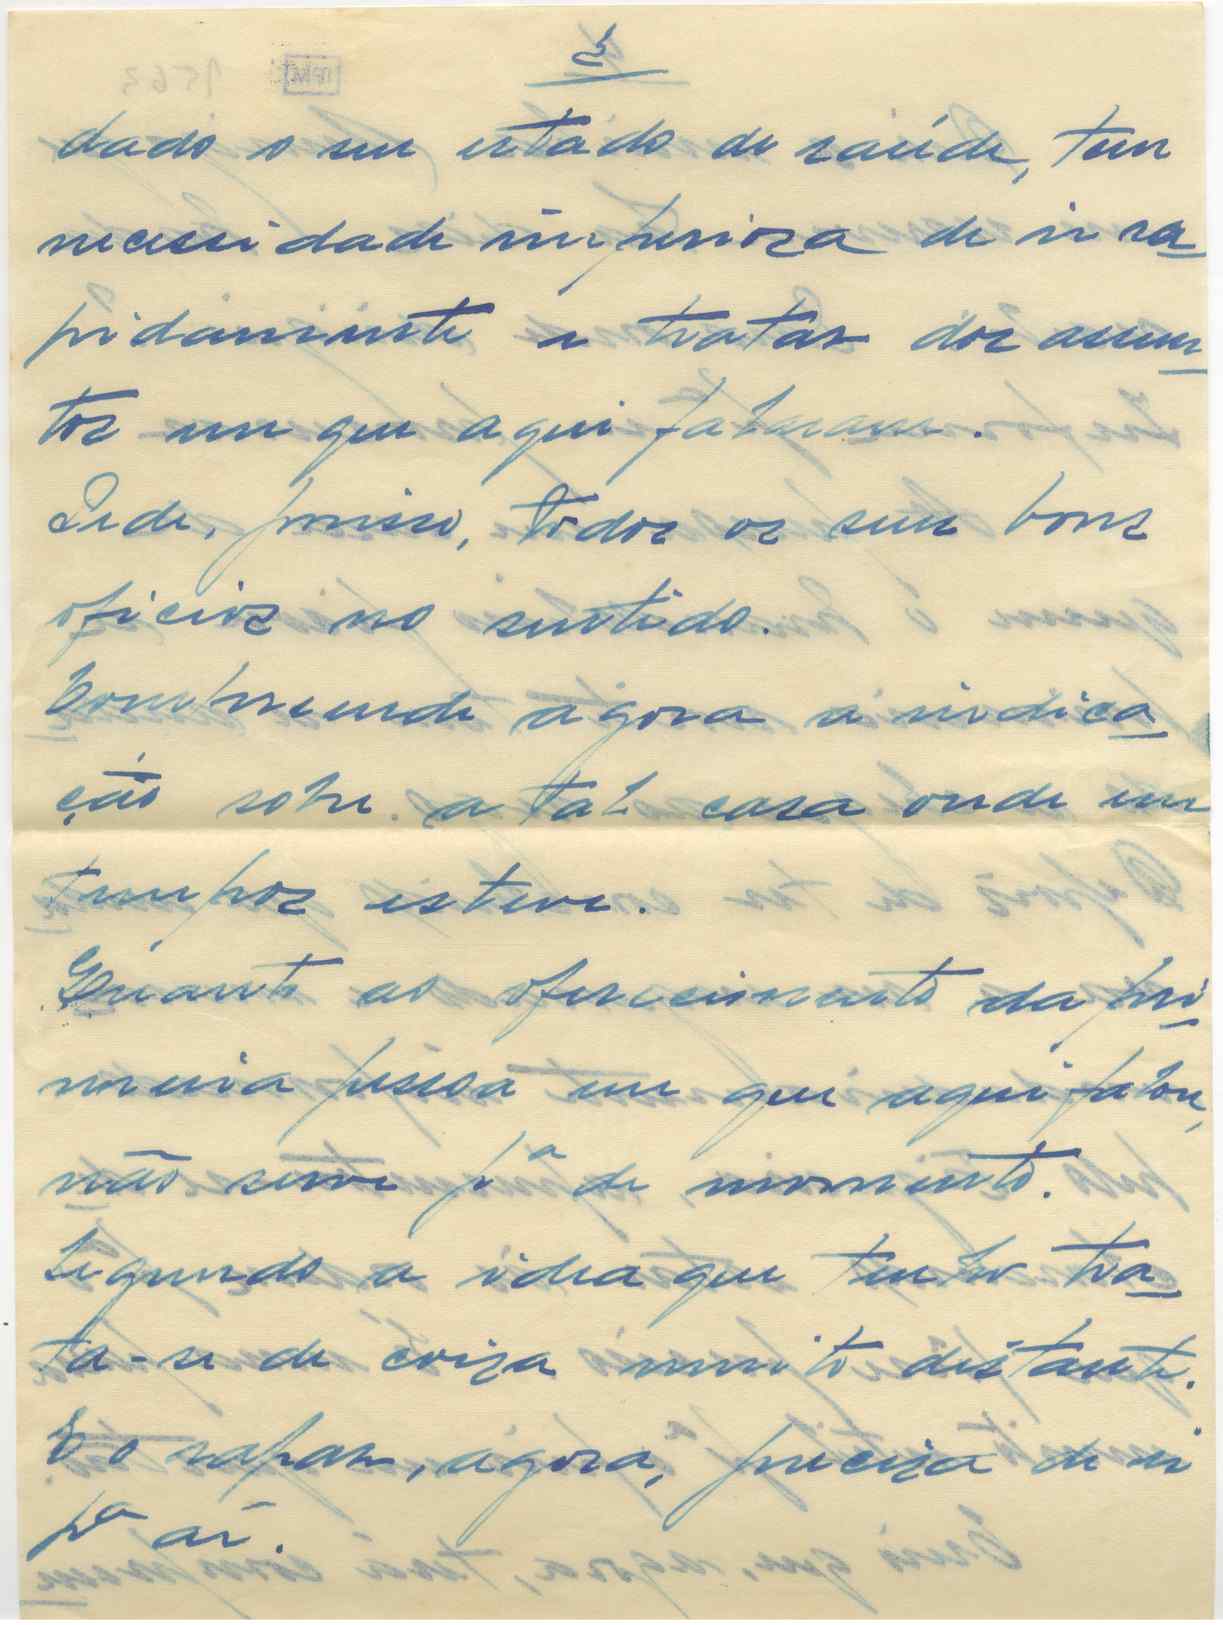 3
dado o seu estado de saúde, tem
necessidade imperiosa de ir ra
pidamente a tratar dos assun
tos em que aqui falaram.
Pede, por isso, todos os seus bons
oficios no sentido.
Compreende agora a indica
ção sobre a tal casa onde em
tempos esteve.
Quanto ao oferecimento da pri
meira pessoa em que aqui falou,
não serve pª de momento.
Segundo a idea que tenho tra
ta-se de coisa muito distante.
E o rapaz, agora, precisa de ir
pª aí.